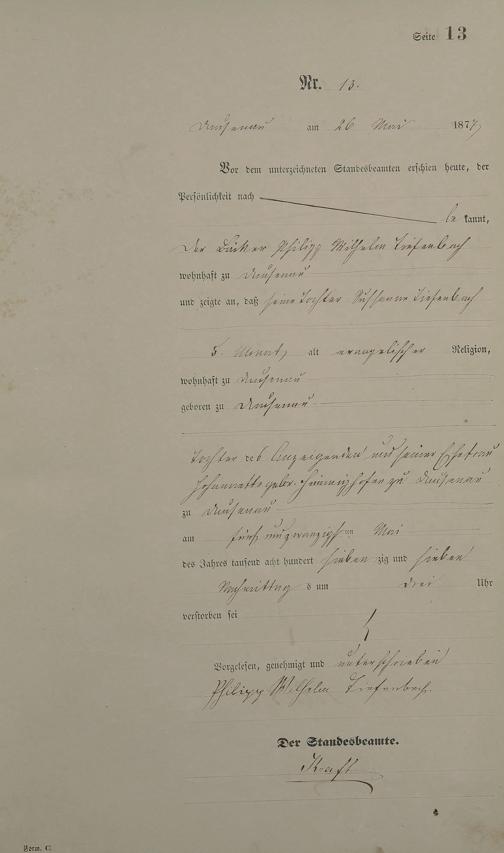 Seite 13
Nr. 13.
Dausenau am 26 Mai 1877
Vor dem unterzeichneten Standesbeamten erschien heute, der
Persönlichkeit nach
be kannt,
der Philipp Wilhelm Tiefenbach
wohnhaft zu Dausenau
und zeigte an, daß seine Tochter Susanne Tiefenbach
5 Monat, alt evangelischer Religion,
wohnhaft zu Dausenau
geboren zu Dausenau
Tochter des Anzeigenden und seiner Ehefrau
Johannette gebr. zu Dausenau
zu Dausenau
am fünf und zwanzigsten Mai
des Jahres tausend acht hundert sieben zig und sieben
Nachmittag s um drei Uhr
verstorben sei
Vorgelesen, genehmigt und unterschrieben
Philipp Wilhelm Tiefenbach.
Der Standesbeamte.
Kraft
Form. C.